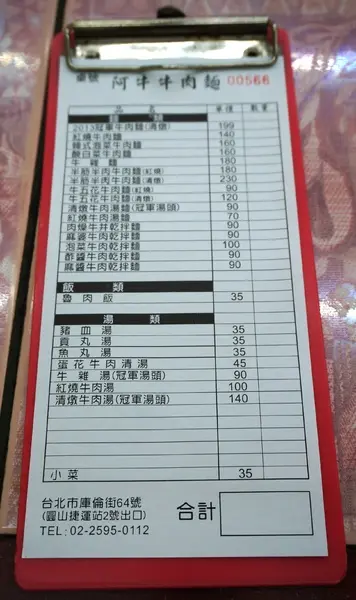 桌號 阿牛牛肉麵 00566
品名 單價 數量
麵類
2013冠軍牛肉麵(清燉) 199
紅燒牛肉麵 140
韓式泡菜牛肉麵 160
酸白菜牛肉麵 160
牛雜麵 180
半筋半肉牛肉麵(紅燒) 180
半筋半肉牛肉麵(清燉) 230
牛五花牛肉麵(紅燒) 90
牛五花牛肉麵(清燉) 120
清燉牛肉湯麵(冠軍湯頭) 90
紅燒牛肉湯麵 70
肉燥牛丼乾拌麵 90
麻醬牛肉乾拌麵 90
泡菜牛肉乾拌麵 100
酢醬牛肉乾拌麵 90
麻醬牛肉乾拌麵 90
飯類
魯肉飯 35
湯類
豬血湯 35
貢丸湯 35
魚丸湯 35
蛋花牛肉清湯 45
牛雜湯(冠軍湯頭) 90
紅燒牛肉湯 100
清燉牛肉湯(冠軍湯頭) 140
小菜 35
台北市庫倫街64號
(圓山捷運站2號出口)
TEL: 02-2595-0112
合計